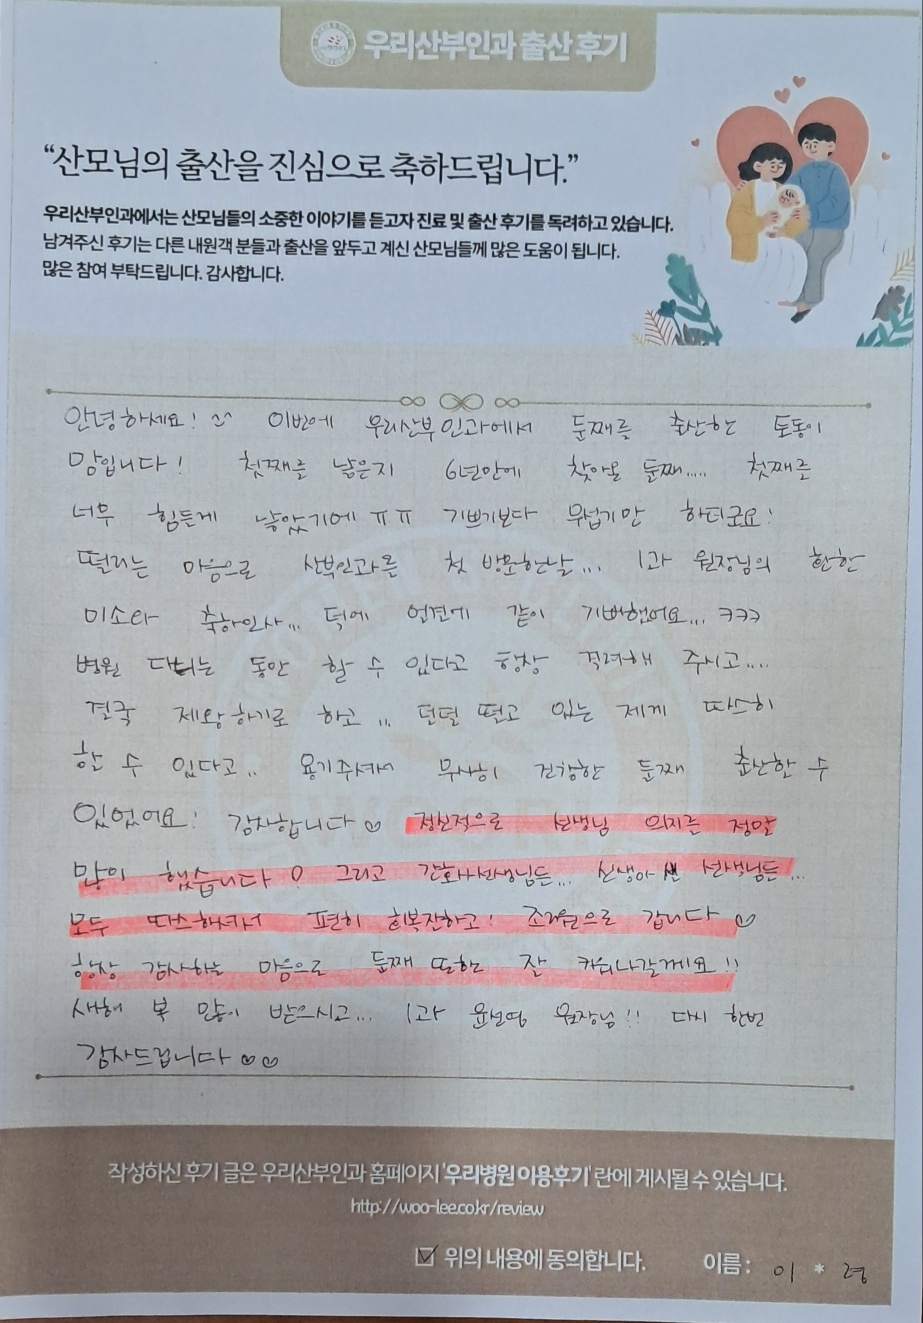 우리산부인과 출산 후기
“산모님의 출산을 진심으로 축하드립니다.”
우리산부인과에서는 산모님들의 소중한 이야기를 듣고자 진료 및 출산 후기를 독려하고 있습니다.
남겨주신 후기는 다른 내원객 분들과 출산을 앞두고 계신 산모님들께 많은 도움이 됩니다.
많은 참여 부탁드립니다. 감사합니다.
안녕하세요! ^^ 이번에 우리산부인과에서 둘째를 출산한 토동이
맘입니다! 첫째를 낳은지 6년만에 찾아온 둘째..... 첫째를
너무 힘들게 낳았기에 ㅠㅠ 기쁘기보다 무섭기만 하더군요!
떨리는 마음으로 산부인과를 첫 방문한날... 1과 원장님의 환한
미소와 축하인사... 덕에 얼떨결에 같이 기뻐했어요... ㅋㅋㅋ
병원 다니는 동안 할 수 있다고 항상 격려해 주시고....
결국 제왕하기로 하고 .. 덜덜 떨고 있는 제게 따스히
할 수 있다고.. 용기주셔서 무사히 건강한 둘째 출산할 수
있었어요! 감사합니다 ♡ 전반적으로 선생님 의지를 정말
많이 했습니다! 그리고 간호사선생님들... 신생아실 선생님들...
모두 따스하셔서 편히 회복잘하고! 조리원으로 갑니다 ♡
항상 감사하는 마음으로 둘째 또한 잘 키워나갈게요!!
새해 복 많이 받으시고... 1과 원장님!! 다시 한번
감사드립니다 ♡♡
작성하신 후기 글은 우리산부인과 홈페이지 '우리병원 이용후기' 란에 게시될 수 있습니다.
http://woo-lee.co.kr/review
☑ 위의 내용에 동의합니다. 이름 : 이 * 령